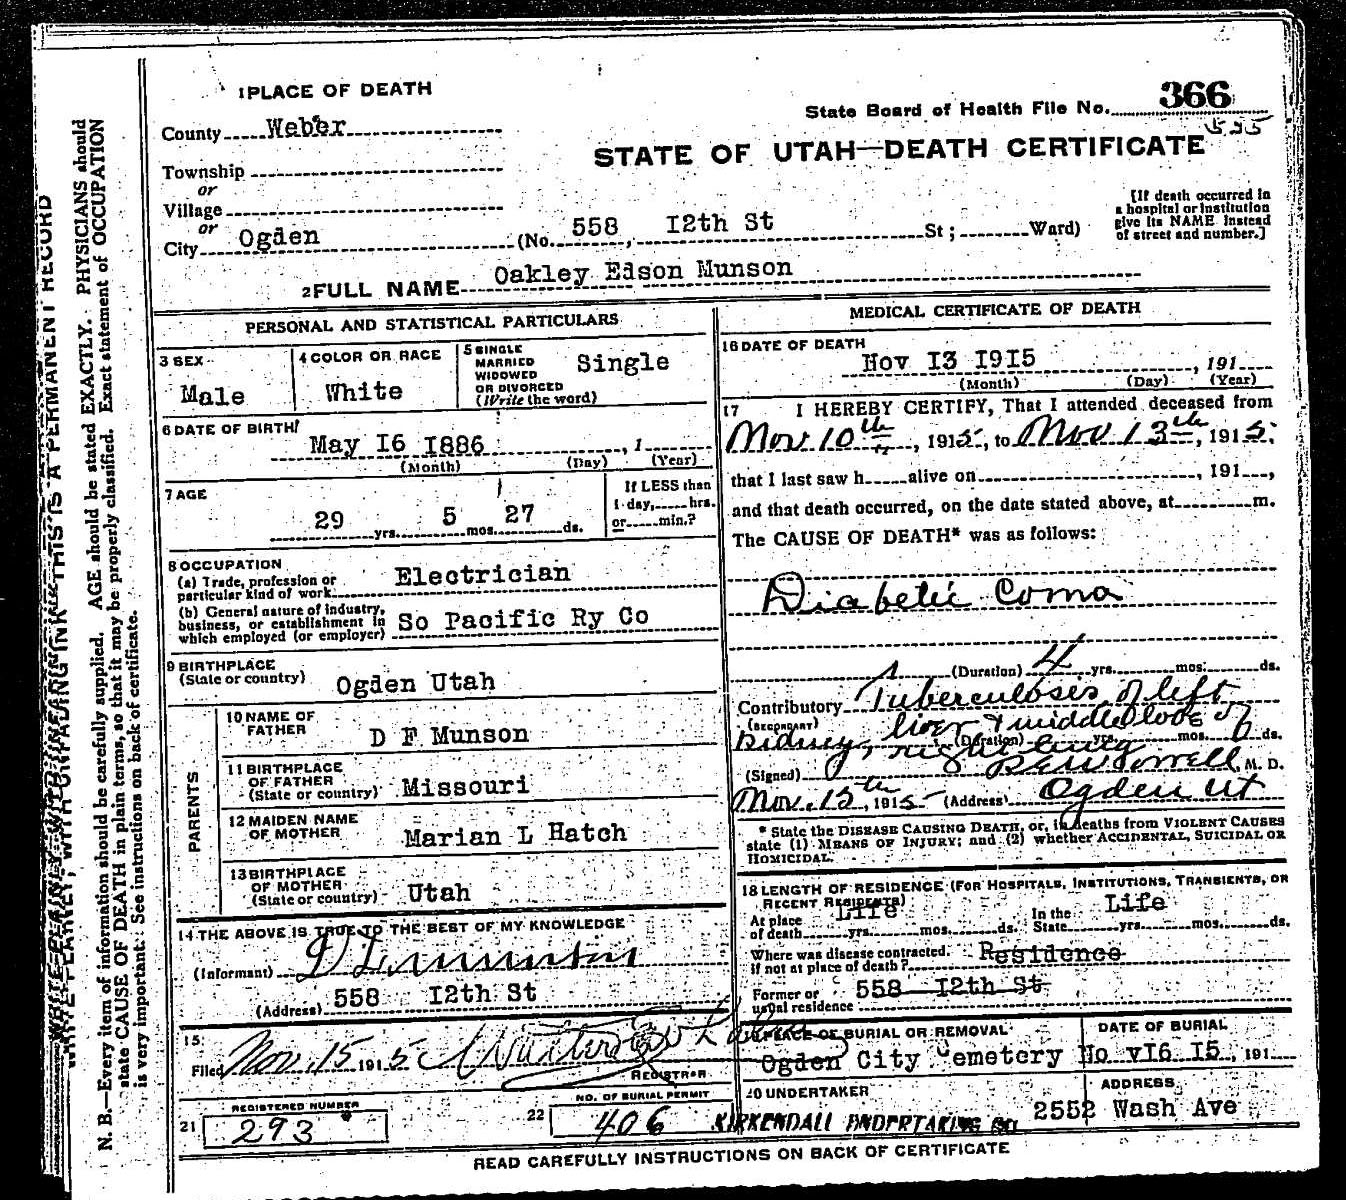 1 PLACE OF DEATH
County Weber
Township
or
Village
or
City Ogden (No. 558 I2th St St ; Ward)
State Board of Health File No. 366
535
STATE OF UTAH—DEATH CERTIFICATE
[If death occurred in
a hospital or institution
give its NAME instead
of street and number.]
2 FULL NAME Oakley Edson Munson
PERSONAL AND STATISTICAL PARTICULARS
3 SEX
Male
4 COLOR OR RACE
White
5 SINGLE
MARRIED
WIDOWED
OR DIVORCED
(Write the word)
Single
6 DATE OF BIRTH
May I6 I886 , 1
(Month) (Day) (Year)
7 AGE
29 yrs. 5 mos. 27 ds.
If LESS than
1 day, hrs.
or min.?
8 OCCUPATION
(a) Trade, profession or
particular kind of work
Electrician
(b) General nature of industry,
business, or establishment in
which employed (or employer)
So Pacific Ry Co
9 BIRTHPLACE
(State or country)
Ogden Utah
PARENTS
10 NAME OF
FATHER
D F Munson
11 BIRTHPLACE
OF FATHER
(State or country)
Missouri
12 MAIDEN NAME
OF MOTHER
Marian L Hatch
13 BIRTHPLACE
OF MOTHER
(State or country)
Utah
14 THE ABOVE IS TRUE TO THE BEST OF MY KNOWLEDGE
(Informant) Munson
(Address) 558 I2th St
15
Filed Nov. 15 1915
REGISTRAR
REGISTERED NUMBER
21 293
NO. OF BURIAL PERMIT
22 406
MEDICAL CERTIFICATE OF DEATH
16 DATE OF DEATH
Nov I3 I9I5 , 191
(Month) (Day) (Year)
17 I HEREBY CERTIFY, That I attended deceased from
Nov 10th , 1915, to Nov 13th, 1915,
that I last saw h alive on , 191 ,
and that death occurred, on the date stated above, at m.
The CAUSE OF DEATH* was as follows:
Diabetic Coma
(Duration) 4 yrs. mos. ds.
Contributory Tuberculoses of left
(SECONDARY)
kidney, liver & middle lobe of
right lung
(Duration) yrs. mos. ds.
(Signed) M. D.
Nov. 15th, 1915 (Address) Ogden Ut
* State the DISEASE CAUSING DEATH, or, in deaths from VIOLENT CAUSES
state (1) MEANS OF INJURY; and (2) whether ACCIDENTAL, SUICIDAL OR
HOMICIDAL.
18 LENGTH OF RESIDENCE (FOR HOSPITALS, INSTITUTIONS, TRANSIENTS, OR
RECENT RESIDENTS)
At place
of death Life yrs. mos. ds.
In the
State Life yrs. mos. ds.
Where was disease contracted.
if not at place of death? Residence
Former or
usual residence 558 I2th St.
19 PLACE OF BURIAL OR REMOVAL
Ogden City Cemetery
DATE OF BURIAL
No vI6 I5 , 191
20 UNDERTAKER
KIRKENDALL UNDERTAKING CO
ADDRESS
2552 Wash Ave
READ CAREFULLY INSTRUCTIONS ON BACK OF CERTIFICATE
WRITE PLAINLY, WITH UNFADING INK—THIS IS A PERMANENT RECORD
N. B.—Every item of information should be carefully supplied. AGE should be stated EXACTLY. PHYSICIANS should
state CAUSE OF DEATH in plain terms, so that it may be properly classified. Exact statement of OCCUPATION
is very important. See instructions on back of certificate.